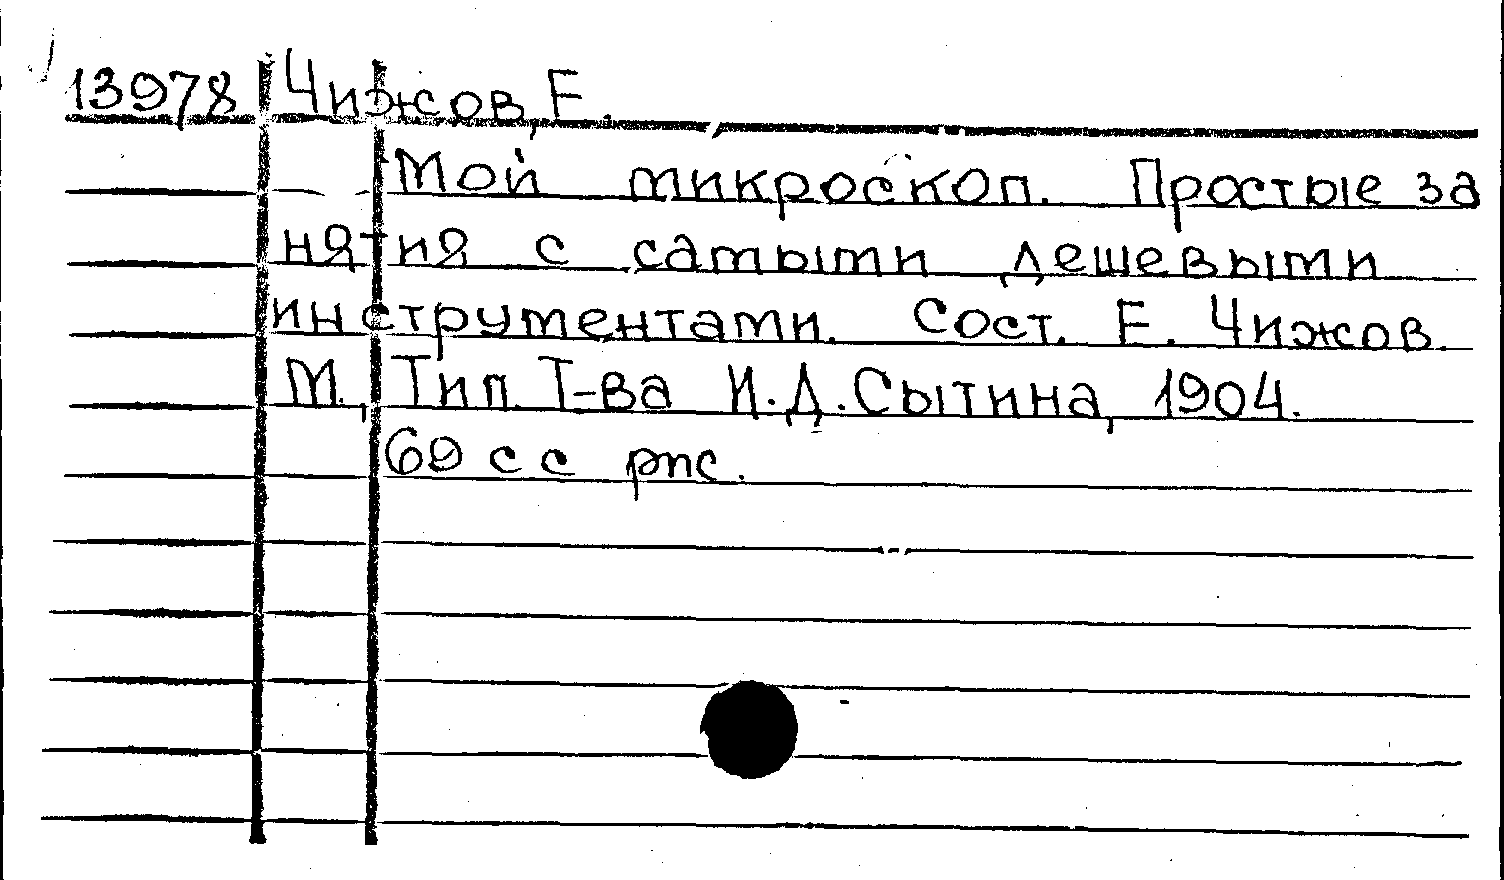 13978 Чижов, Е.
Мой микроскоп. Простые за
нятия с самыми дешевыми
инструментами. Сост. Е. Чижов.
М., Тип Т-ва И.Д. Сытина, 1904.
69 с с рис.